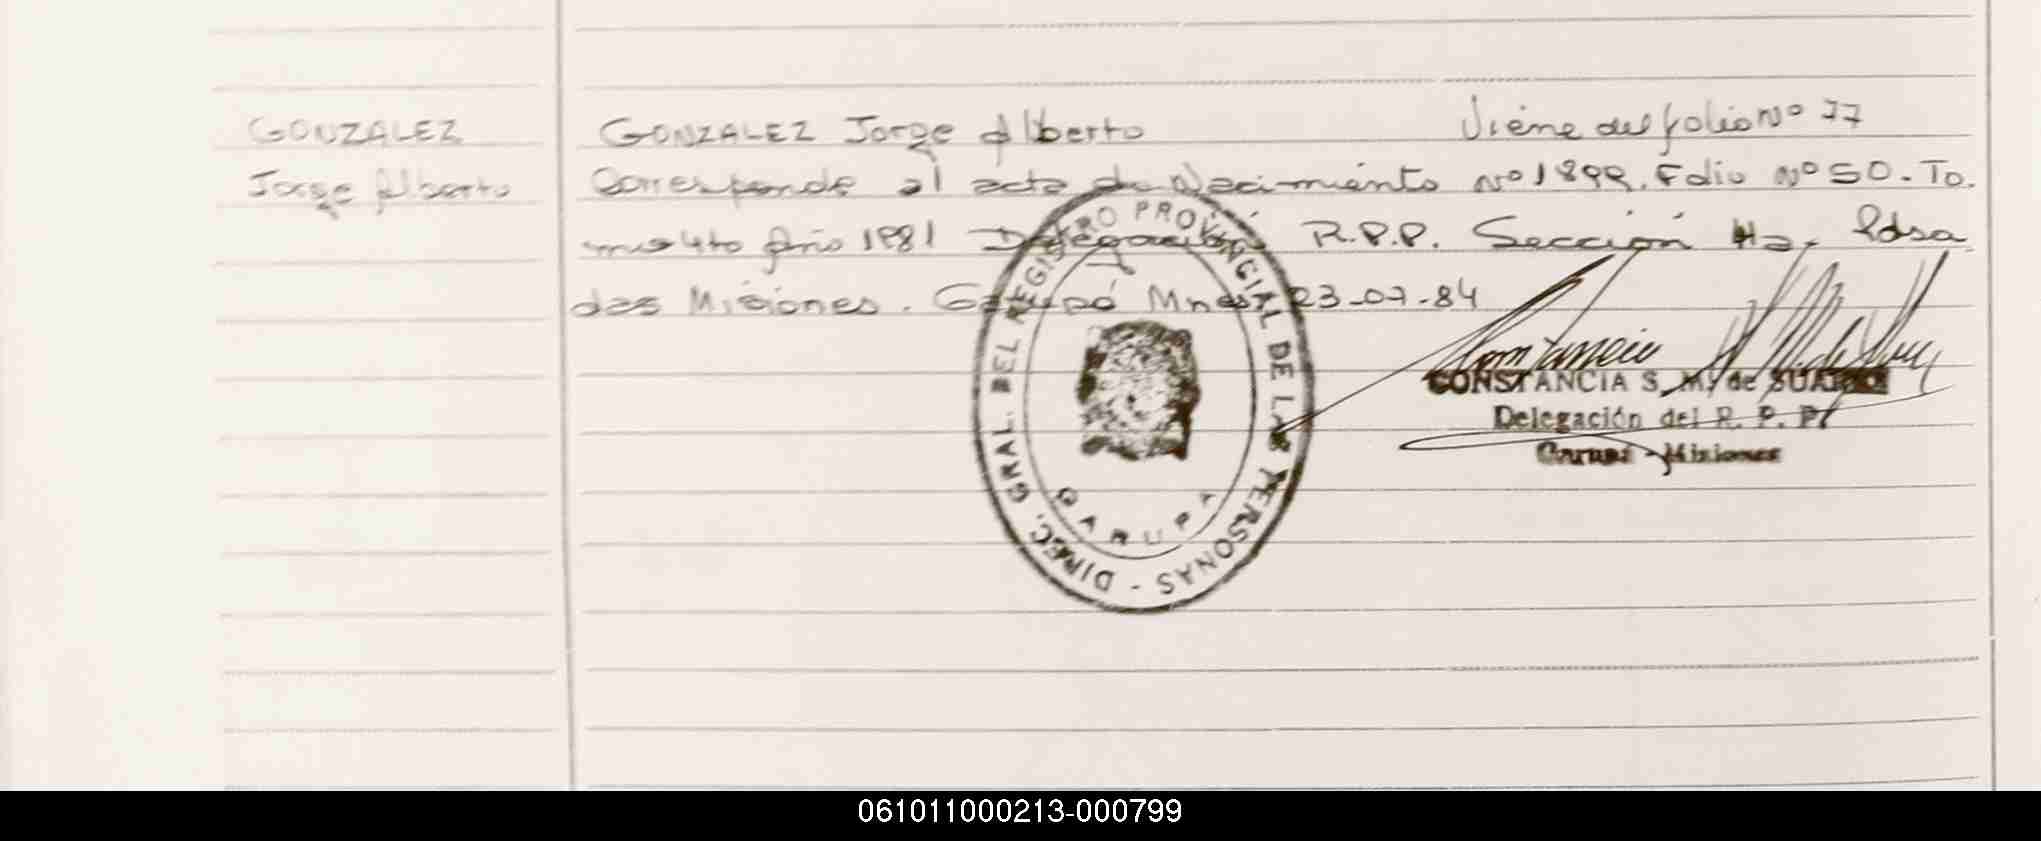 GONZALEZ
Jorge Alberto
GONZALEZ Jorge Alberto Viene del folio Nº 77
Corresponde al acta de Nacimiento Nº 1899. Folio Nº 50. To.
mo 4to Año 1981 Delegación R.P.P. Sección 4ta. Pdsa
das Misiones. Garupá Mnes. 23-07-84
DIREC. GRAL. DEL REGISTRO PROVINCIAL DE LAS PERSONAS -
GARUPA
CONSTANCIA S. M. de SUAREZ
Delegación del R. P. P.
Garupá - Misiones
061011000213-000799